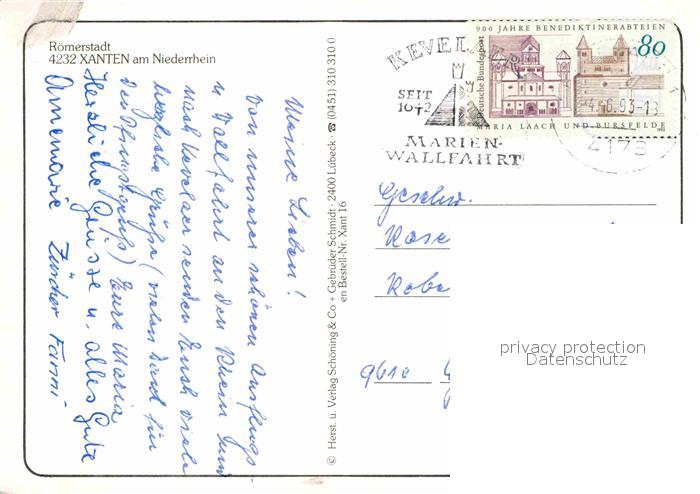 Römerstadt
4232 XANTEN am Niederrhein
Meine Lieben!
Von unserer schönen Ausflugs-
u. Wallfahrt an den Rhein und
nach Kevelaer senden Euch viele
herzliche Grüße (vielen Dank für
den Pfingstgruß) Eure Maria
Herzliche Grüsse u. alles Gute
Annemarie Zürcher Fanni
© Herst. u. Verlag Schöning & Co + Gebrüder Schmidt · 2400 Lübeck · ☎ (0451) 310 310 0
en Bestell-Nr. Xant 16
KEVELAER
SEIT
1642
MARIEN-
WALLFAHRT
900 JAHRE BENEDIKTINERABTEIEN
80
Deutsche Bundespost
MARIA LAACH UND BURSFELDE
6.93-18
4178
Geschw.
Rose
961e
privacy protection
Datenschutz